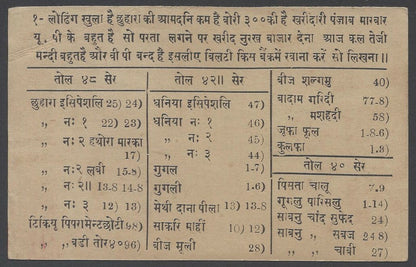 १- लोडिंग खुला है छुहारा की आमदनि कम है बोरी ३००की है खरीदारी पंजाब मारवार
यू. पी के बहुत है सो परता लगने पर खरीद नुरख बाजार देना आज कल तेजी
मन्दी बहुत है और वी पी बन्द है इसलीए बिलटी किय बैंकमें रवाना करें सो लिखना॥
तोल ४८ सेर
छुहारा इसिपेशलि 25) 24)
„ नः १ 22) 23)
„ नः २ हथोरा मारका
17)
„ नः२ लूबी 15.8)
„ नः २॥ 13.8 14.8
„ नः ३ 12) 13)
टिकियु पिपरामेन्टछोटी 98)
„ „ बडी तोर ४० 96)
तोल ४२॥ सेर
धनिया इसिपेशलि 47)
धनिया नः १ 46)
„ नः २ 45)
„ नः ३ 44)
गुगल 1.7)
गुगली 1.6)
मेथी दाना पीला 13) 13.8
साकरि मांहीं 10) 12)
बीज मूली 28)
बीज शलगमु 40)
बादाम गरिदी 77.8)
„ मशहदी 58)
जूफा फूल 1.8-6)
कुलफा 1.9)
तोल ४० सेर
पिसता चालू 7.9
गूगलु पारिसलु 1.14)
साबनु चांद सुफेद 24)
साबनु „ सबज 24.8)
„ „ चाबी 27)